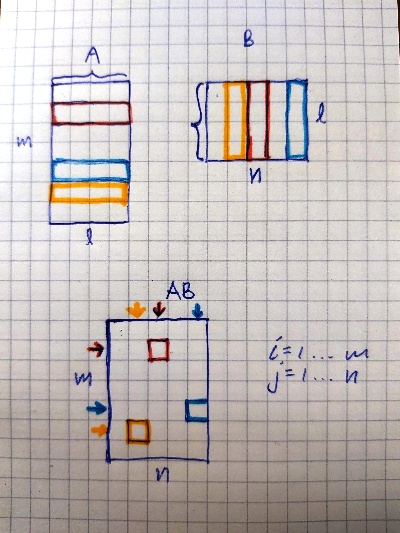 A
B
m
l
l
n
AB
m
n
i=1 ... m
j=1 ... n